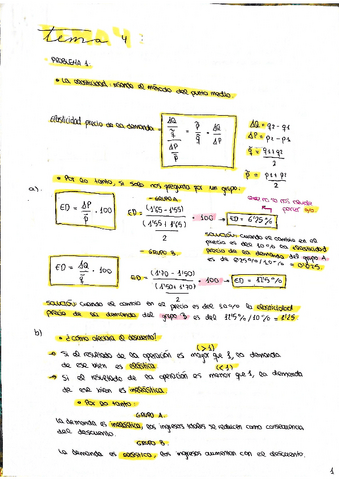 tema 4:
PROBLEMA 1.
• La elasticidad: usando el método del punto medio.
Elasticidad precio de la demanda = ΔQ/q̄ / ΔP/p̄ = p̄/q̄ · ΔQ/ΔP
ΔQ = q2 - q1
ΔP = p2 - p1
q̄ = q1 + q2 / 2
p̄ = p1 + p2 / 2
• Por lo tanto, si solo nos pregunta por un grupo.
a).
- GRUPO A.
ED = ΔP/p̄ · 100
ED = (1'65 - 1'55) / (1'55 + 1'65) / 2 · 100 → ED = 6'25%
SOLUCIÓN: Cuando el cambio en el
precio es del 10% la elasticidad
precio de la demanda del grupo A.
es de 6'25% / 10% = 0'625.
- GRUPO B.
ED = ΔQ/q̄ · 100
ED = (1'70 - 1'50) / (1'50 + 1'70) / 2 · 100 → ED = 12'5%
SOLUCIÓN: Cuando el cambio en el precio es del 10% la elasticidad
precio de la demanda del grupo B es del 12'5% / 10% = 1'25
b)
• ¿Cómo afectaría el descuento?
(>1)
→ Si el resultado de la operación es mayor que 1, la demanda
de ese bien es elástica.
(<1)
→ Si el resultado de la operación es menor que 1, la demanda
de ese bien es inelástica.
• Por lo tanto:
GRUPO A.
La demanda es inelástica, los ingresos totales se reducen como consecuencia
del descuento.
GRUPO B.
La demanda es elástica, los ingresos aumentan con el descuento.
1